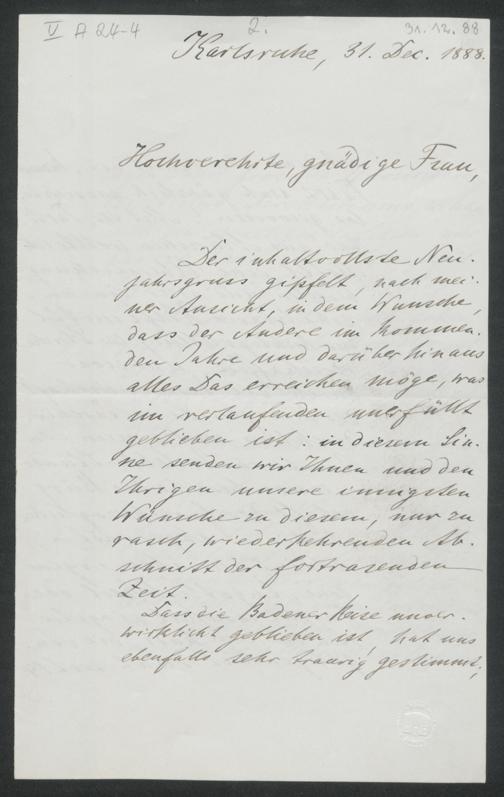 V A 24-4
2.
31.12.88
Karlsruhe, 31. Dec. 1888.
Hochverehrte, gnädige Frau,
Der inhaltvollste Neu-
jahrsgruss gipfelt, nach mei-
ner Ansicht, in dem Wunsche,
dass der Andere im kommen-
den Jahre und darüber hinaus
alles Das erreichen möge, was
im verlaufenden unerfüllt
geblieben ist: in diesem Sin-
ne senden wir Ihnen und den
Ihrigen unsere innigsten
Wünsche zu diesem, nur zu
rasch, wiederkehrenden Ab-
schnitt der fortrasenden
Zeit.
Dass die Badener Reise unver-
wirklicht geblieben ist, hat uns
ebenfalls sehr traurig gestimmt;